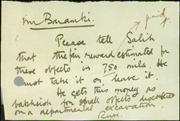 Mr Baramki.
Please tell Salih
that the fair reward estimated for
these objects is 750 mils. He
must take it or leave it.
He gets this money as
bakhshish for small objects
on a departmental excavation.